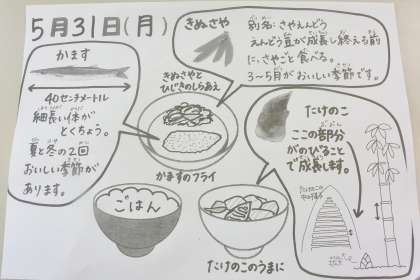 5月31日(月)
かます
40センチメートル
細長い体が
とくちょう。
夏と冬の2回
おいしい季節が
あります。
きぬさや
別名：さやえんどう
えんどう豆が成長し終える前
に、さやごと食べる。
3〜5月がおいしい季節です。
きぬさやと
ひじきのしらあえ
かますのフライ
ごはん
たけのこのうまに
たけのこ
ここの部分
がのびること
で成長します。